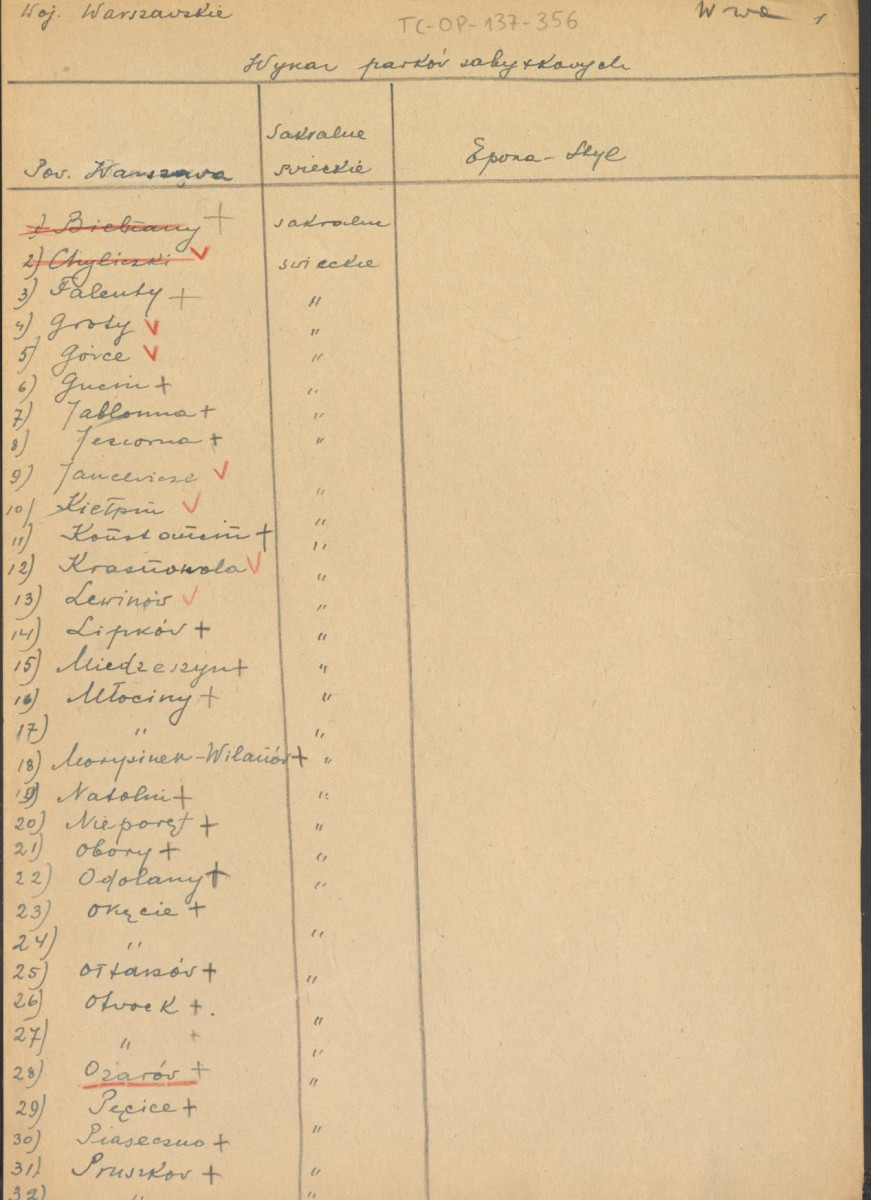 Woj. Warszawskie TC-OP-137-356 W-wa 1
Wykaz parków zabytkowych
Sakralne
Pow. Warszawa swieckie Epoka - Styl
1) Bielany + sakralne
2) Chyliczki ✓ swieckie
3) Falenty + "
4) Groty ✓ "
5) Górce ✓ "
6) Gucin + "
7) Jabłonna + "
8) Jeziorna + "
9) Janczewice ✓ "
10) Kiełpin ✓ "
11) Konstancin + "
12) Krasnowola ✓ "
13) Lewinów ✓ "
14) Lipków + "
15) Miedzeszyn + "
16) Młociny + "
17) " "
18) Morysinek - Wilanów + "
19) Natolin + "
20) Nieporęt + "
21) Obory + "
22) Odolany + "
23) Okęcie +
24) " "
25) Ołtarzów + "
26) Otwock +. "
27) " + "
28) Ożarów + "
29) Pęcice + "
30) Piaseczno +
31) Pruszków + "
32) " "